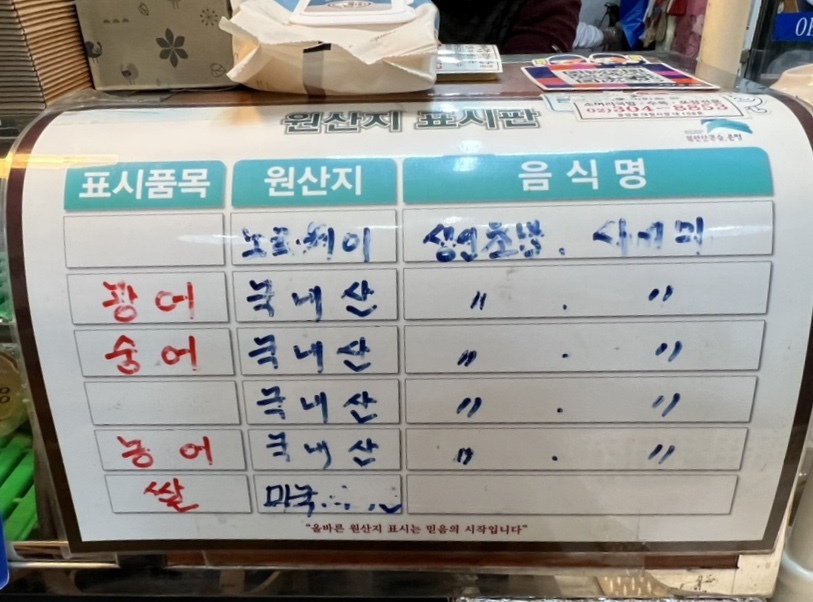 원산지 표시판
표시품목 원산지 음식명
노르웨이 생선초밥 . 사시미
광어 국내산 〃 . 〃
숭어 국내산 〃 . 〃
국내산 〃 . 〃
농어 국내산 〃 . 〃
쌀 미국
"올바른 원산지 표시는 믿음의 시작입니다"